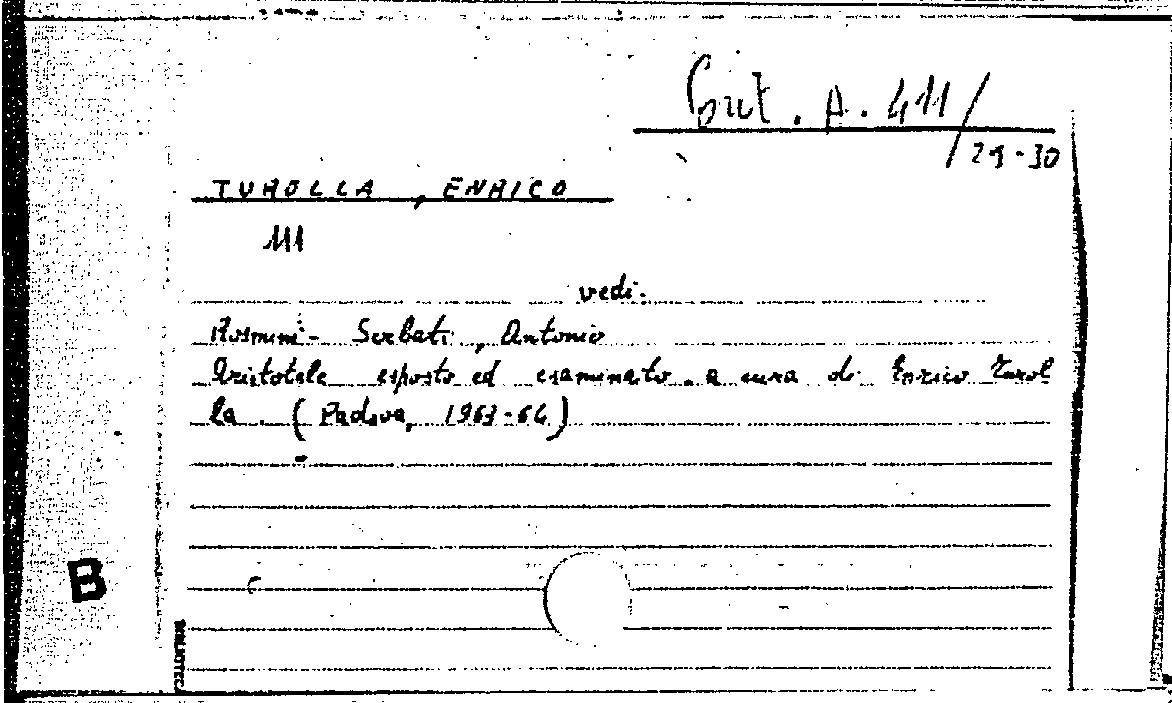 Cont. A. 411/
29-30
TUROLLA, ENRICO
111
vedi:
Rosmini-Serbati, Antonio
Aristotele esposto ed esaminato. a cura di Enrico Turol
la. (Padova, 1963-64)
B
BIBLIOTEC